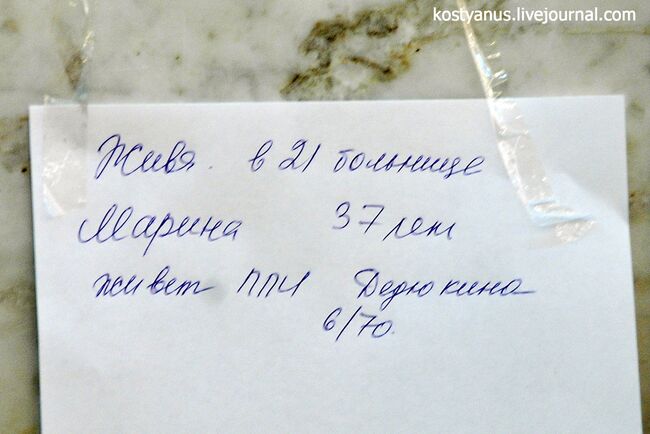 kostyanus.livejournal.com
Живя. в 21 больнице
Марина 37 лет
живет ППИ Дедюкина
6/70.